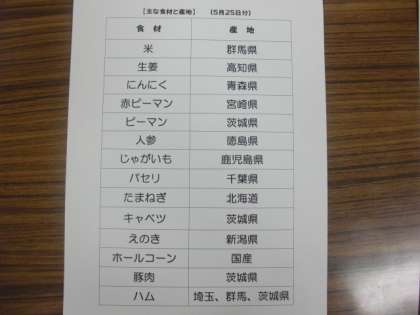 【主な食材と産地】 （5月25日分）
食 材 産 地
米 群馬県
生姜 高知県
にんにく 青森県
赤ピーマン 宮崎県
ピーマン 茨城県
人参 徳島県
じゃがいも 鹿児島県
パセリ 千葉県
たまねぎ 北海道
キャベツ 茨城県
えのき 新潟県
ホールコーン 国産
豚肉 茨城県
ハム 埼玉、群馬、茨城県